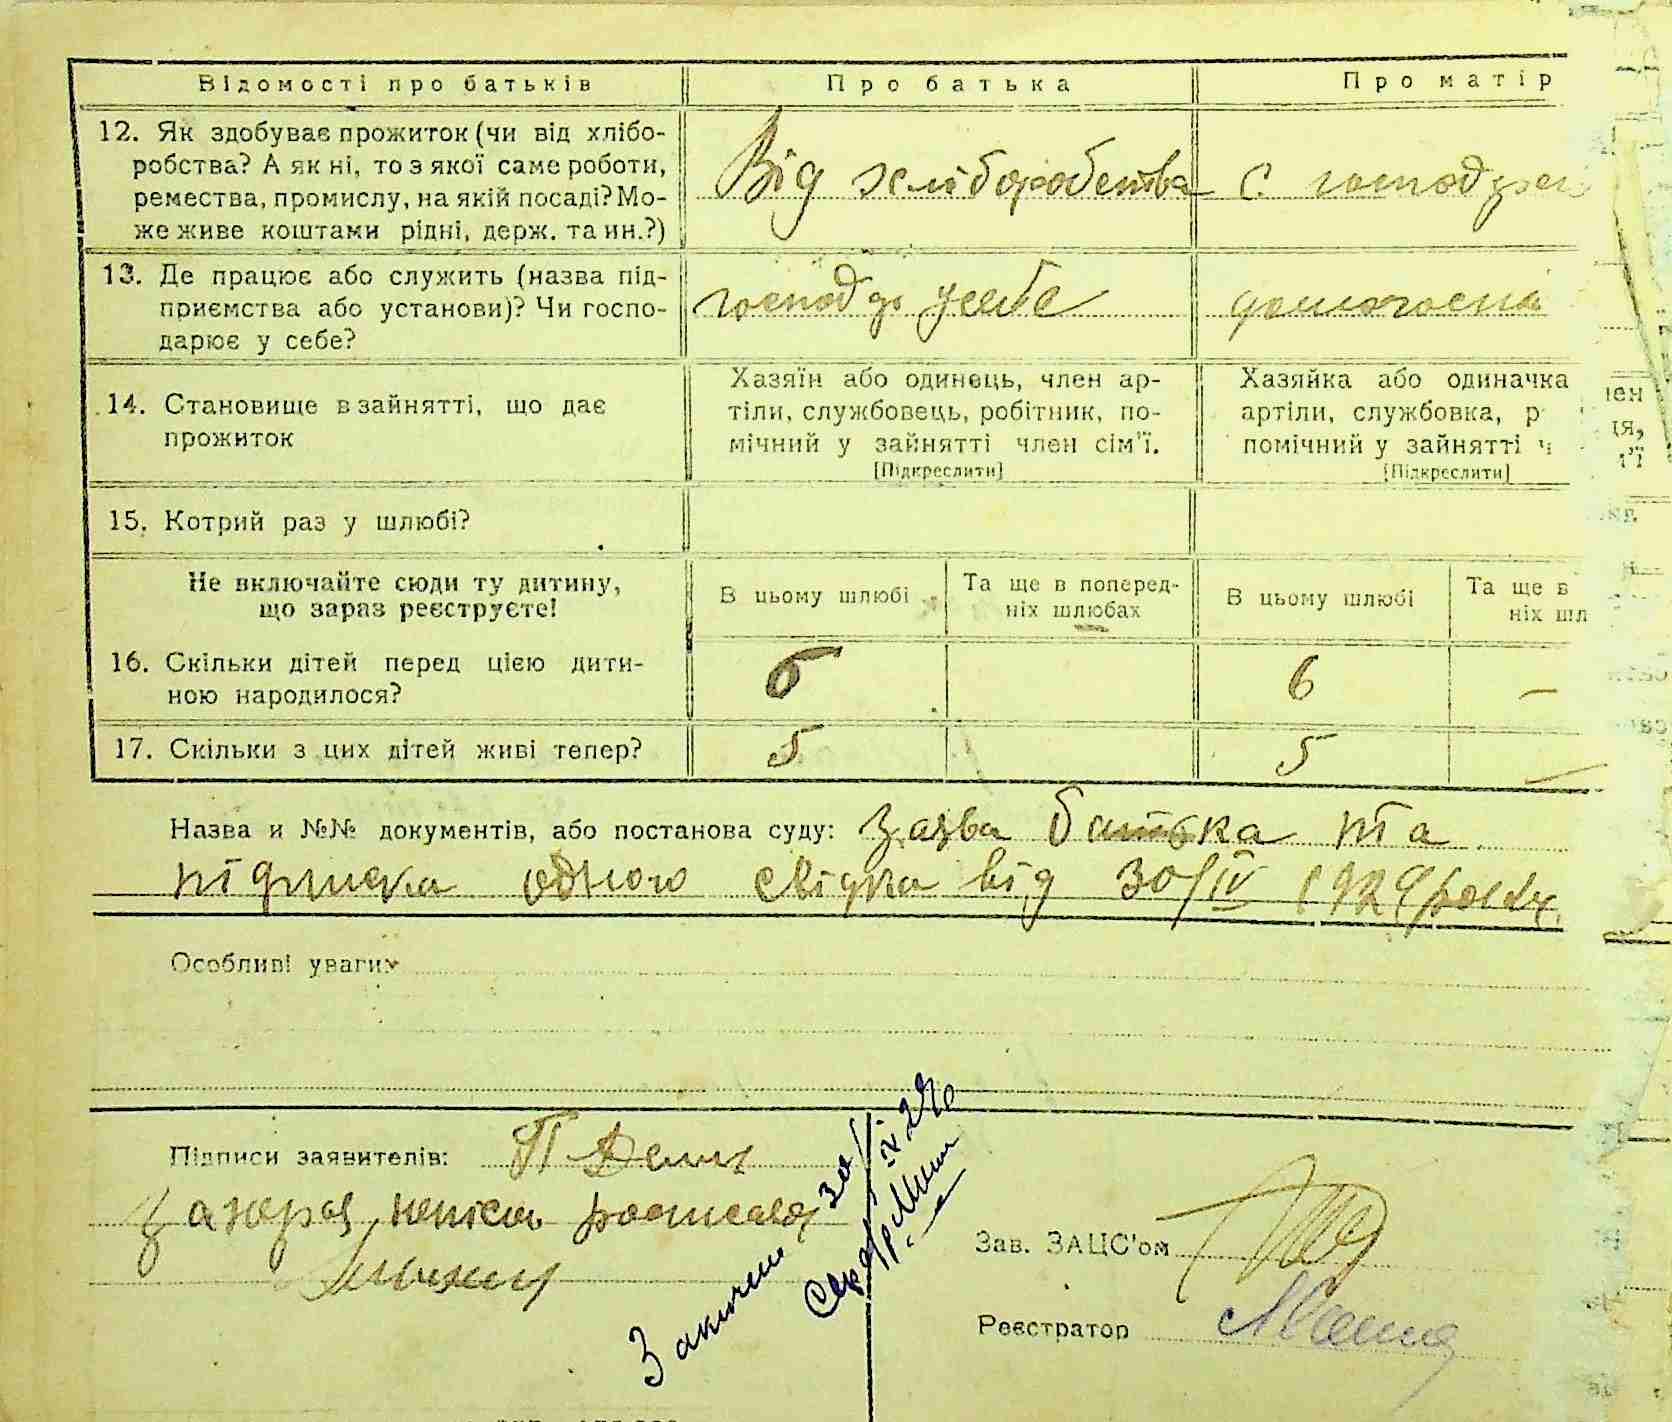 Відомості про батьків Про батька Про матір
12. Як здобуває прожиток (чи від хлібо-
робства? А як ні, то з якої саме роботи,
ремества, промислу, на якій посаді? Мо-
же живе коштами рідні, держ. та ин.?)
Від хліборобства
13. Де працює або служить (назва під-
приємства або установи)? Чи госпо-
дарює у себе?
у себе
14. Становище в зайнятті, що дає
прожиток
Хазяїн або одинець, член ар-
тіли, службовець, робітник, по-
мічний у зайнятті член сім'ї.
[Підкреслити]
Хазяйка або одиначка
артіли, службовка, р
помічний у зайнятті ч
[Підкреслити]
15. Котрий раз у шлюбі?
Не включайте сюди ту дитину,
що зараз реєструєте!
В цьому шлюбі
Та ще в поперед-
ніх шлюбах
В цьому шлюбі
Та ще в
ніх шл
16. Скільки дітей перед цією дити-
ною народилося?
6 6 –
17. Скільки з цих дітей живі тепер?
5 5 –
Назва и №№ документів, або постанова суду: Заява батька та
підписка одного свідка від 30/IV 1929 року.
Особливі уваги:
Підписи заявителів:
Зав. ЗАЦС'ом
Реєстратор